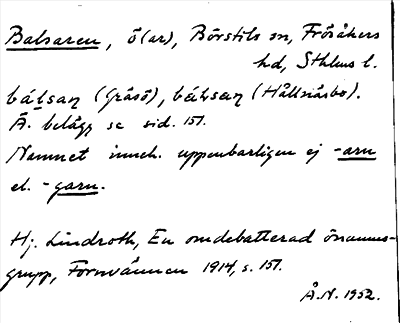 Balsaren, ö(ar), Börstils sn, Frösåkers
hd, Sthlms l.
bálsaɳ (Gräsö), bálsaɳ (Hållnäsbo).
Ä. belägg se sid. 151.
Namnet inneh. uppenbarligen ej -arn
el. -garn.
Hj. Lindroth, En omdebatterad önamns-
grupp, Fornvännen 1914, s. 151.
Å.N. 1952.